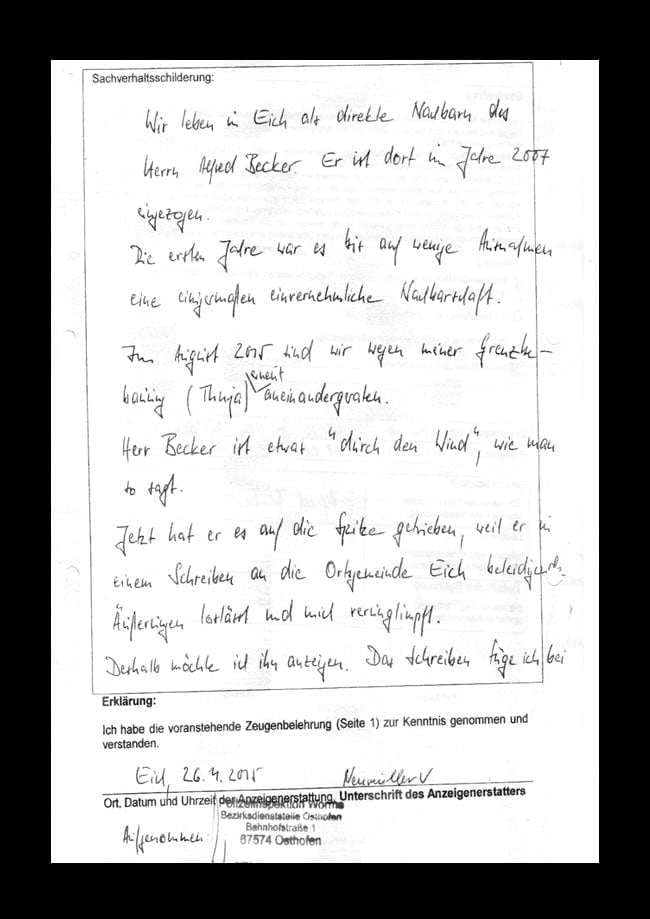 Sachverhaltsschilderung:
Wir leben in Eich als direkte Nachbarn des
Herrn Alfred Becker. Er ist dort im Jahre 2007
eingezogen.
Die ersten Jahre war es bis auf wenige Ausnahmen
eine einigermaßen einvernehmliche Nachbarschaft.
Im August 2015 sind wir wegen meiner Grenzbe-
bauung (Thuja) erneut aneinandergeraten.
Herr Becker ist etwas "durch den Wind", wie man
so sagt.
Jetzt hat er es auf die Spitze getrieben, weil er in
einem Schreiben an die Ortsgemeinde Eich
Äußerungen loslässt und mich verunglimpft.
Deshalb möchte ich ihn anzeigen. Das Schreiben füge ich bei
Erklärung:
Ich habe die voranstehende Zeugenbelehrung (Seite 1) zur Kenntnis genommen und
verstanden.
Eich, 2015 Neumüller V
Ort, Datum und Uhrzeit der Anzeigenerstattung, Unterschrift des Anzeigenerstatters
Polizeiinspektion Worms
Bezirksdienststelle Osthofen
Bahnhofstraße 1
67574 Osthofen
Aufgenommen: